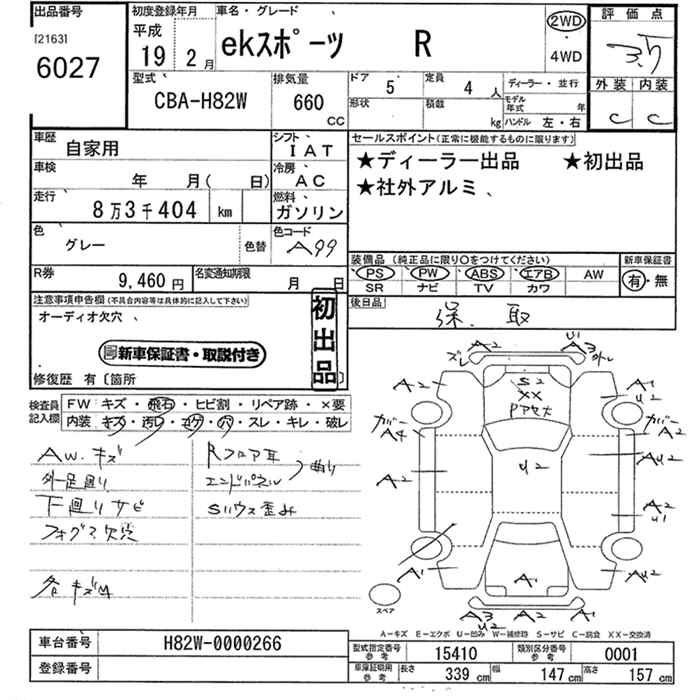 出品番号
[2163]
6027
初度登録年月
平成
19 2月
車名・グレード
ekスポーツ R
2WD
・
4WD
評価点
3.5
外装 内装
C C
型式
CBA-H82W
排気量
660
cc
ドア 5
定員 4 人
ディーラー・並行
形状
積載 kg
モデル年式 年
ハンドル 左・右
車歴
自家用
シフト
IAT
車検
年 月( 日)
冷房
AC
走行
8万3千404 km
燃料
ガソリン
色
グレー
色替
色コード
A99
R券
9,460円
名変通知期限
月 日
セールスポイント(正常に機能するものに限ります)
★ディーラー出品 ★初出品
★社外アルミ
装備品(純正品に限り○をつけてください)
PS PW ABS エアB AW
SR ナビ TV カワ
新車保証書
有・無
後日品
保、取
注意事項申告欄(不具合内容等は具体的に記入して下さい)
オーディオ欠穴
新車保証書・取説付き
初出品
修復歴 有〔箇所 〕
検査員記入欄
FW キズ・飛石・ヒビ割・リペア跡・×要
内装 キズ・汚レ・コゲ・穴・スレ・キレ・破レ
AW.キズ
外一足廻り
下廻りサビ
フォグマ欠穴
各キズM
Rフロア耳
エンドパネル
曲り
Sハウス歪み
A2
U1
A3
ズレ
A2
S2
XX
A1
U2
カバー
A4
カバー
A2
U2
AU2
A2
A2
U1
A1
A1
AU2
スペア
A3
U2
A2
A2
A-キズ E-エクボ U-凹み W-補修跡 S-サビ C-腐食 XX-交換済
車台番号
H82W-0000266
登録番号
型式指定番号 参考
15410
類別区分番号 参考
0001
車庫証明用 参考
長さ 339 cm
幅 147 cm
高さ 157 cm